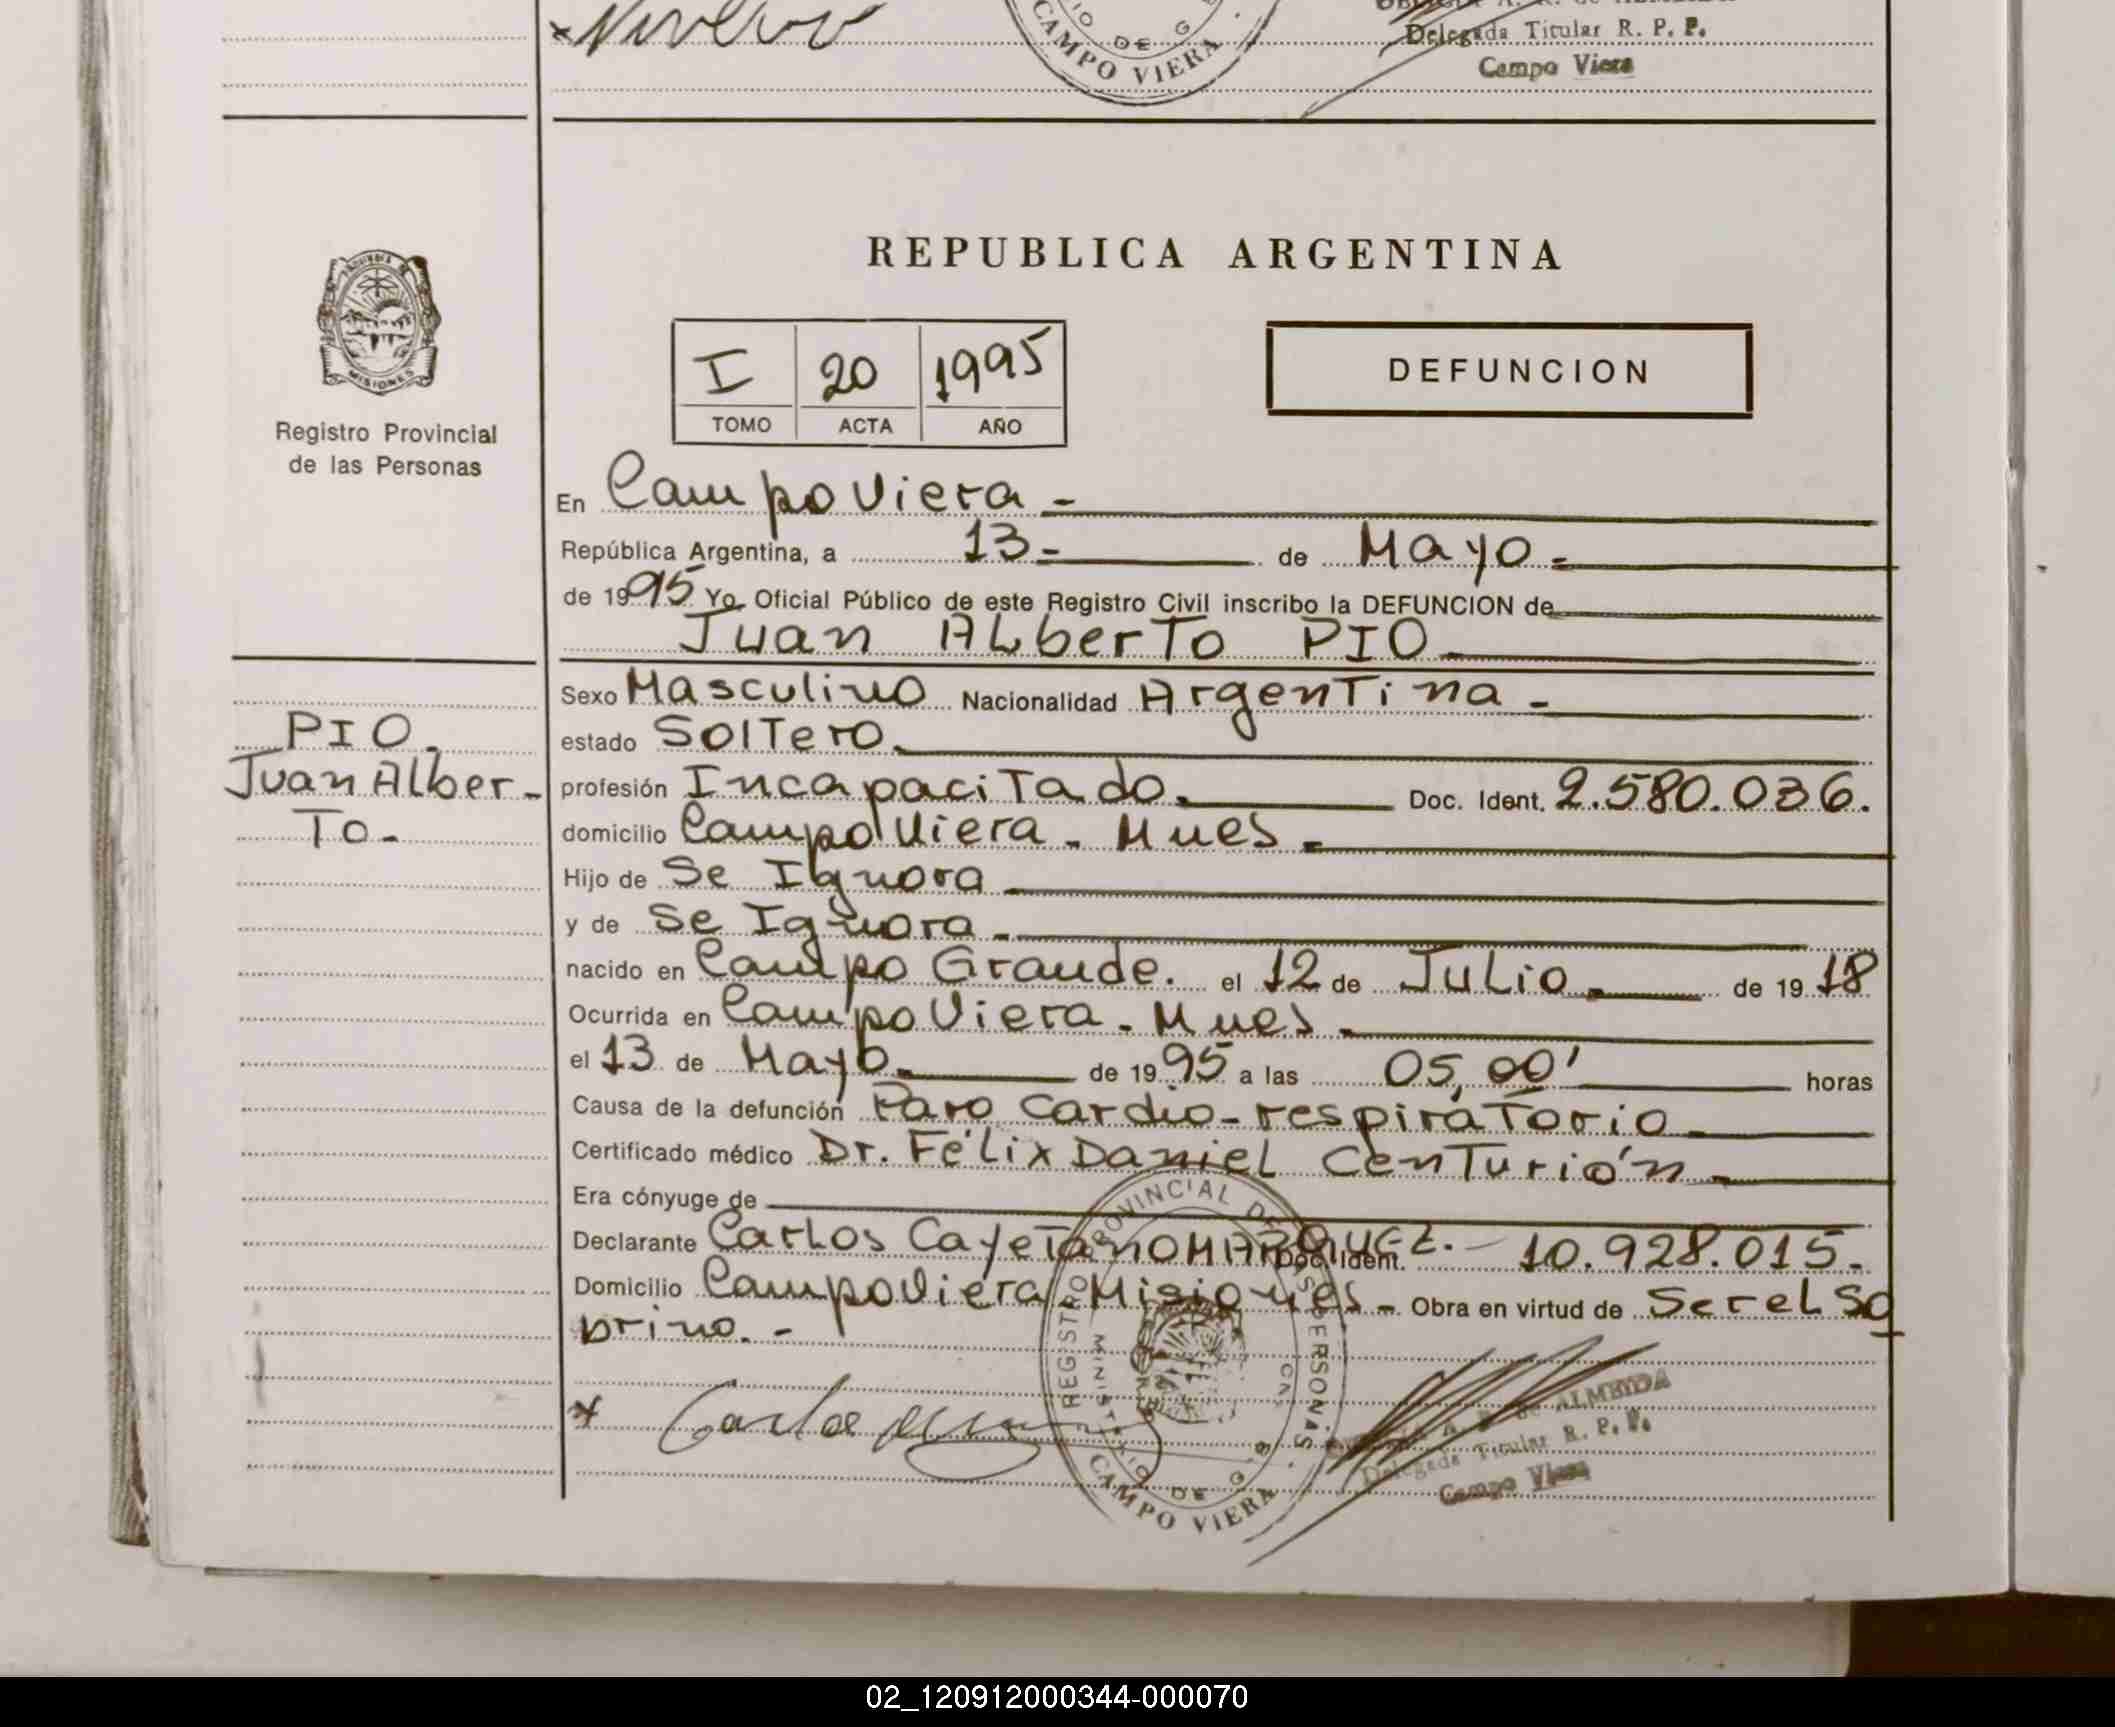 DE G
CAMPO VIERA
Delegada Titular R. P. P.
Campo Viera
PROVINCIA DE
MISIONES
Registro Provincial
de las Personas
REPUBLICA ARGENTINA
I 20 1995
TOMO ACTA AÑO
DEFUNCION
En Campo Viera -
República Argentina, a 13 - de Mayo -
de 1995 Yo, Oficial Público de este Registro Civil inscribo la DEFUNCION de
Juan Alberto PIO
PIO.
Juan Alber-
To-
Sexo Masculino Nacionalidad Argentina -
estado Soltero.
profesión Incapacitado. Doc. Ident. 2.580.036.
domicilio Campo Viera - Mnes.
Hijo de Se Ignora
y de Se Ignora.
nacido en Campo Grande. el 12 de Julio. de 1918
Ocurrida en Campo Viera - Mnes.
el 13 de Mayo. de 1995 a las 05,00' horas
Causa de la defunción Paro cardio-respiratorio
Certificado médico Dr. Félix Daniel Centurión -
Era cónyuge de
Declarante Carlos Cayetano MARQUEZ. - Doc. Ident. 10.928.015.
Domicilio Campo Viera Misiones - Obra en virtud de Ser el So
brino. -
REGISTRO PROVINCIAL DE LAS PERSONAS
MINISTERIO DE G
CAMPO VIERA
de ALMEIDA
Delegada Titular R. P. P.
Campo Viera
02_120912000344-000070